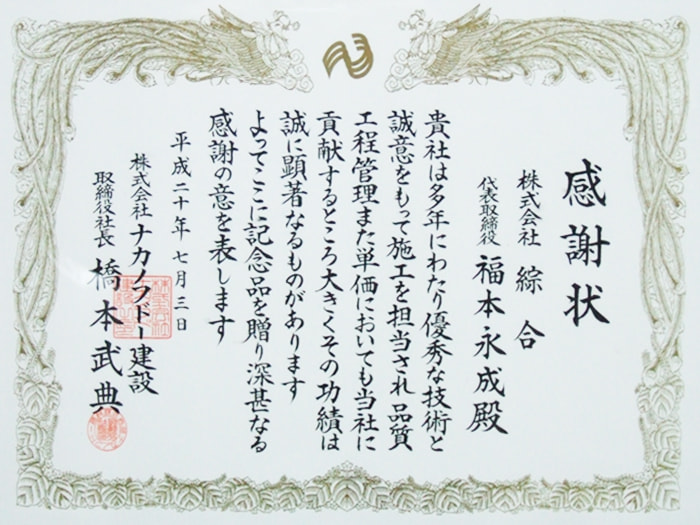 感謝状
株式会社 綜合
代表取締役 福本永成殿
貴社は多年にわたり優秀な技術と
誠意をもって施工を担当され品質
工程管理また単価においても当社に
貢献するところ大きくその功績は
誠に顕著なるものがあります
よってここに記念品を贈り深甚なる
感謝の意を表します
平成二十年七月三日
株式会社ナカノフドー建設
取締役社長 橋本武典